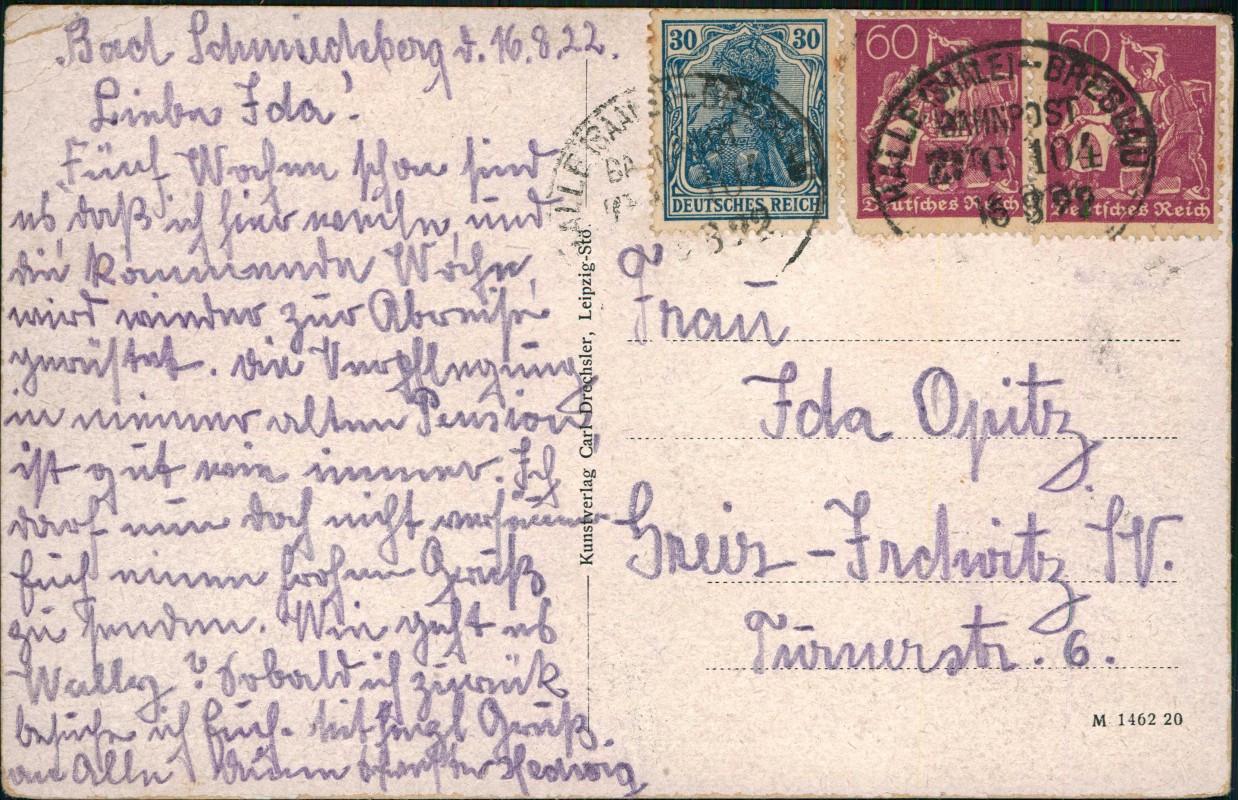 Bad Schmiedeberg d. 16.8.22.
Liebe Ida!
Fünf Wochen schon sind
es, daß ich hier weile, und
die kommende Woche
wird wieder zur Abreise
gerüstet. Die Verpflegung
in meiner alten Pension
ist gut wie immer. Ich
darf nun doch nicht versäumen
Euch einen frohen Gruß
zu senden. Wie geht es
Wally? Sobald ich zurück
besuche ich Euch. Mit herzl. Gruß
an Alle Deine Schwester Hedwig
Kunstverlag Carl Drechsler, Leipzig-Stö.
30 30
DEUTSCHES REICH
60
Deutsches Reich
60
Deutsches Reich
HALLE (SAALE)-BRESLAU
BAHNPOST
ZUG 104
16 8 22
HALLE (SAALE)-BRESLAU
BAHNPOST
8 22
Frau
Ida Opitz
Greiz-Irchwitz /V.
Turnerstr. 6.
M 1462 20